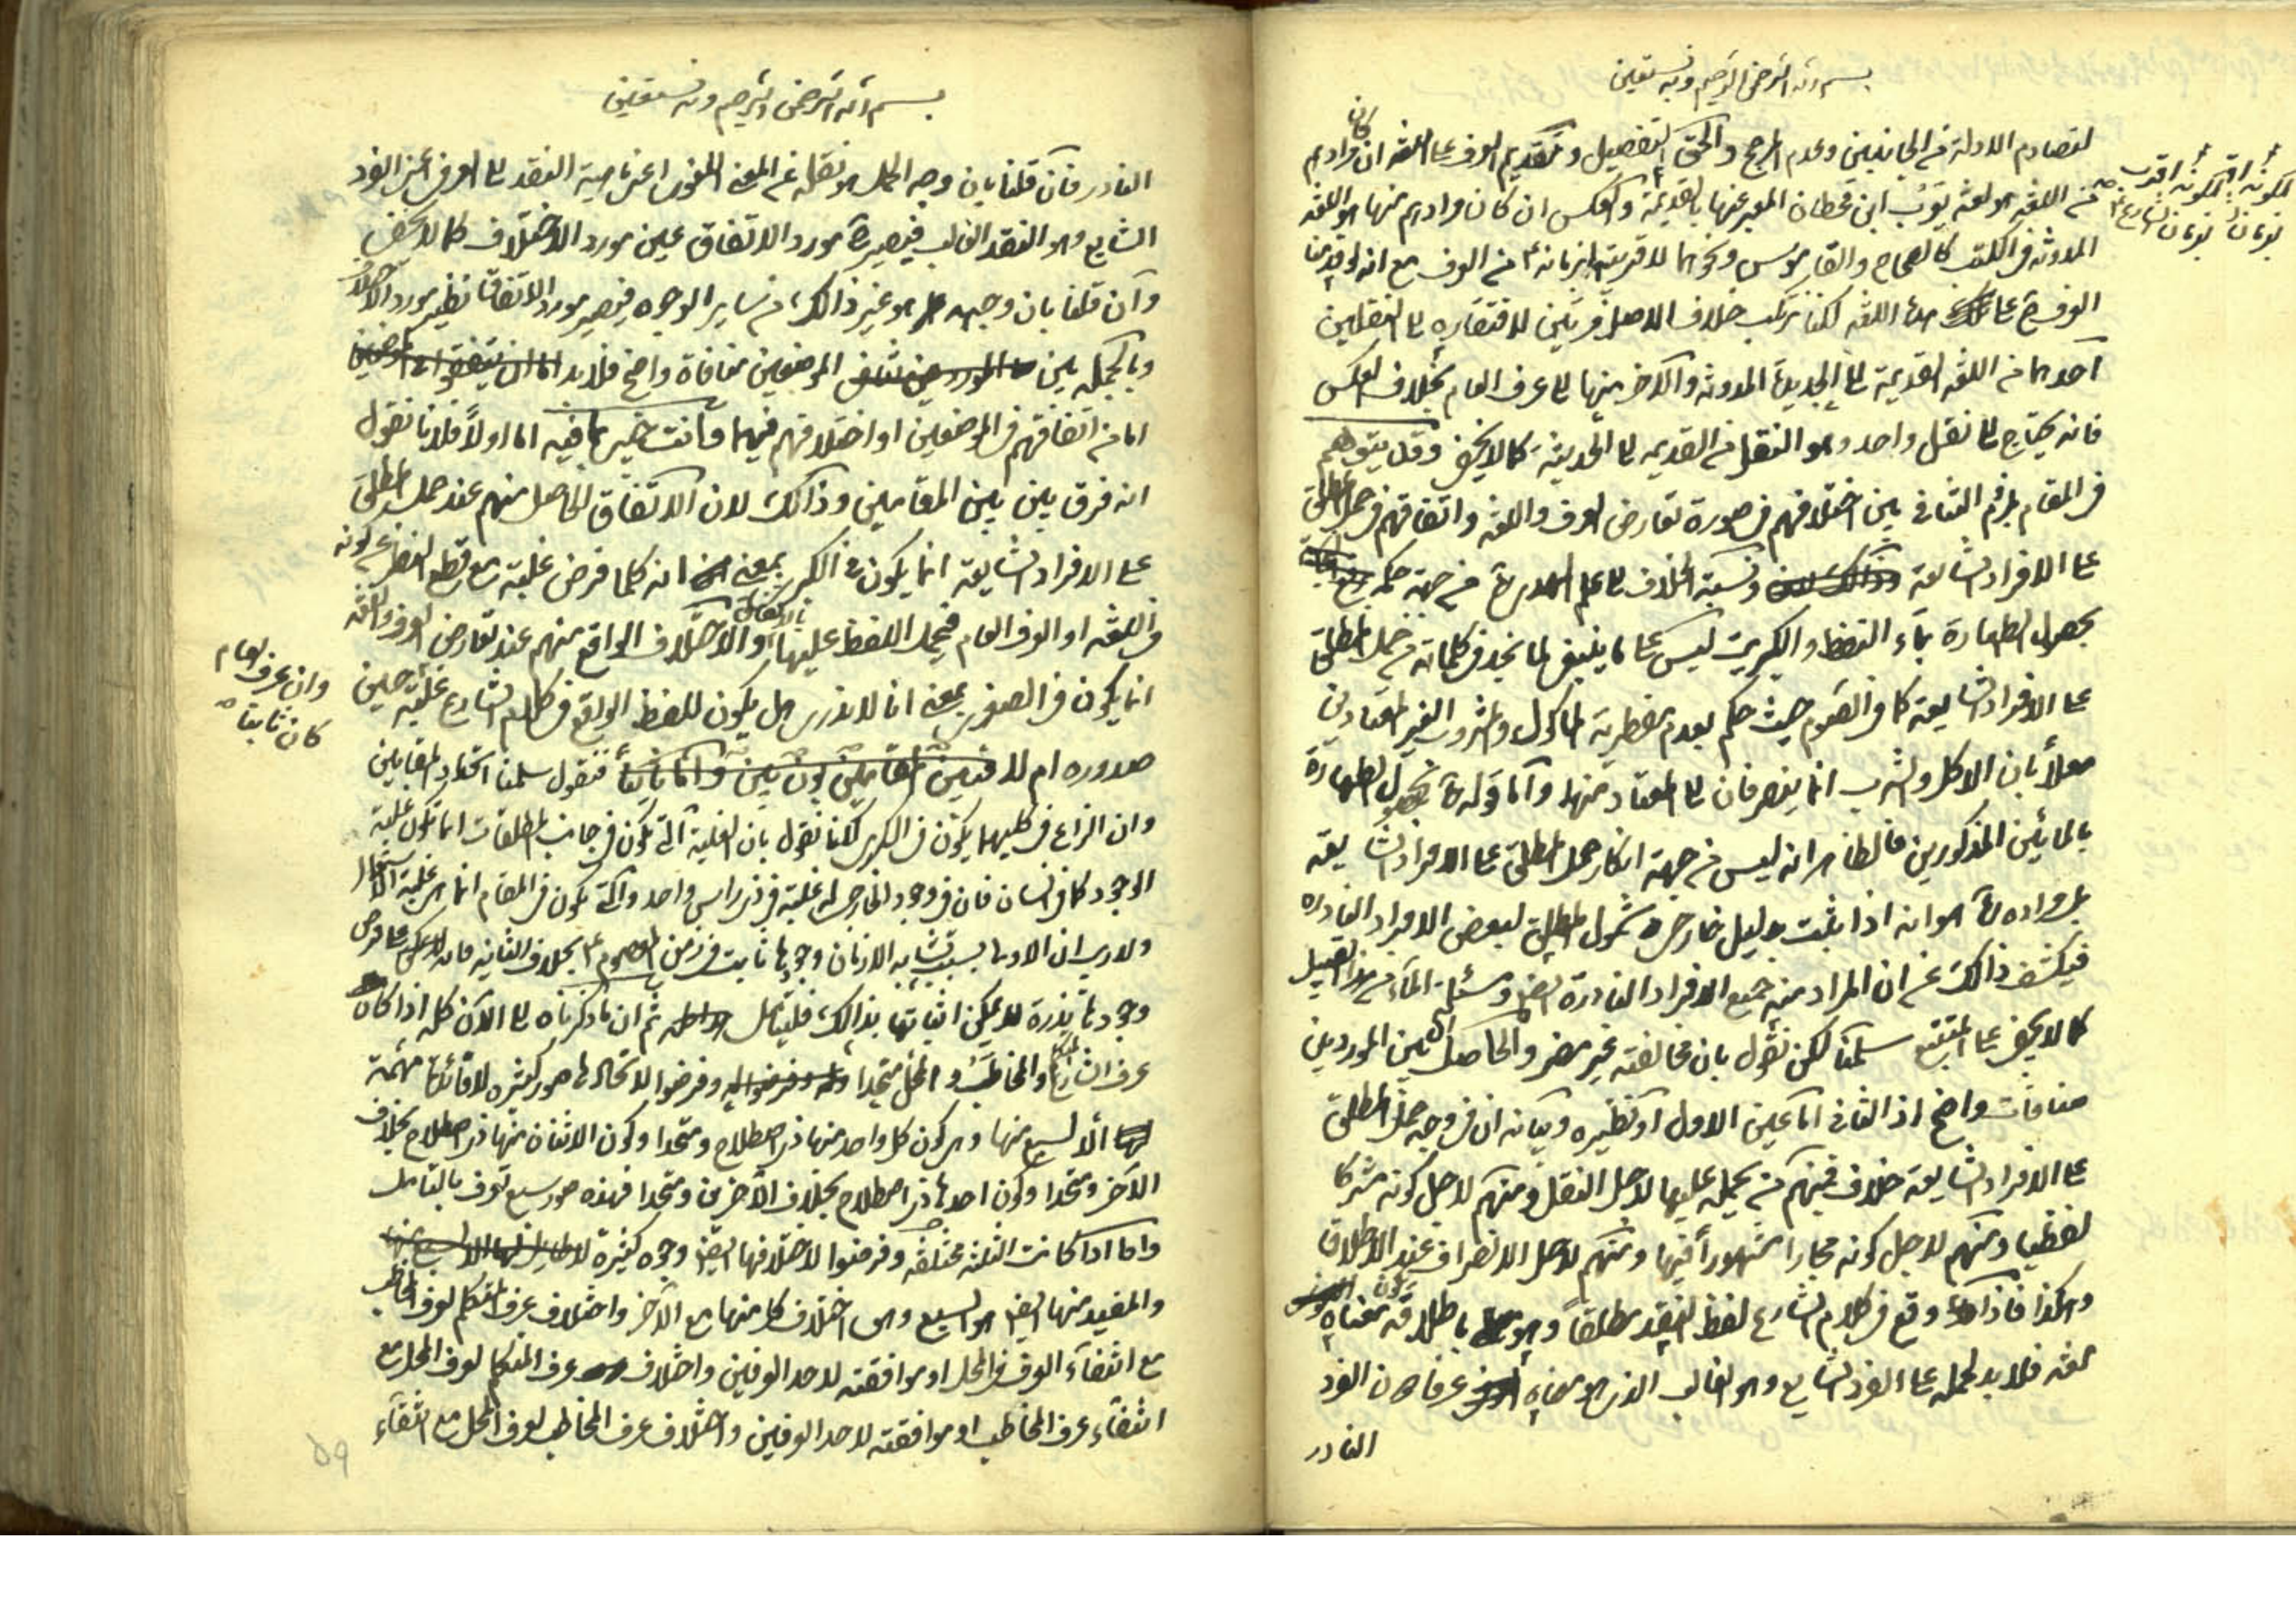 بسم الله الرحمن الرحيم وبه نستعين
لتصادم الادلة من الجانبين وعدم المرجح والحق التفصيل وتقديم العرف على اللغه ان كان مرادهم
من اللغه هو لغة يعرب ابن قحطان المعبر عنها بالقديمة والعكس ان كان مرادهم منها هو اللغه
المدونه فى الكتب كالصحاح والقاموس ونحوهما لاقربيته بزمانه من العرف مع انه لو قدمنا
العرف ح على هذه اللغه لكنا نرتكب خلاف الاصل مرتين لافتقاره الى النقلين
احدهما من اللغه القديمة الى الجديدة المدونه والاخر منها الى عرف العام بخلاف العكس
فانه يحتاج الى نقل واحد وهو النقل من القديمه الى الحديثة كما لا يخفى وقد يتوهم
فى المقام بلزوم التنافى بين اختلافهم فى صورة تعارض العرف واللغه واتفاقهم فى حمل المطلق
على الافراد الشايعة ونسبة الخلاف الى علم الهدى من جهة حكمه
بحصول الطهارة بماء النفط والكبريت ليس على ما ينبغى لما نجد فى كلماته من حمل المطلق
على الافراد الشايعة كما فى الصوم حيث حكم بعدم مفطرية المأكول والمشروب الغير المعتادين
معللا بأن الاكل والشرب انما ينصرفان الى المعتاد منهما واما قوله بحصول الطهارة
بالمائين المذكورين فالظاهر انه ليس من جهة انكار حمل المطلق على الافراد الشايعة
بل مراده هو انه اذا ثبت بدليل خارجى شمول المطلق لبعض الافراد النادره
فيكشف ذالك عن ان المراد منه جميع الافراد النادرة ايضا ومسئلة الماء من هذا القبيل
كما لا يخفى على المتتبع سلمنا لكن نقول بان مخالفته غير مضر والحاصل ان بين الموردين
منافات واضح اذ الثانى اما عين الاول او نظيره وبيانه ان فى وجه حمل المطلق
على الافراد الشايعة خلاف فمنهم من يحمله عليها لاجل النقل ومنهم لاجل كونه مشتركا
لفظيا ومنهم لاجل كونه مجازا مشهورا فيها ومنهم لاجل الانصراف عند الاطلاق
وهكذا فاذا وقع فى كلام الشارع لفظ النقد مطلقا وهو باطلاقه يكون معناه
لغه فلا بد لحمله على الفرد الشايع وهو الغالب الذى هو معناه عرفا دون الفرد
النادر
لكونه اقرب
بزمان الشارع
بسم الله الرحمن الرحيم وبه نستعين
النادر فان قلنا بان وجه الحمل هو نقله عن المعنى اللغوى اعنى ماهية النقد الى العرفى اعنى الفرد
الشايع وهو النقد الغالب فيصير ح مورد الاتفاق عين مورد الاختلاف كما لا يخفى
وان قلنا بان وجهه هو غير ذالك من ساير الوجوه فيصير مورد الاتفاق نظير مورد الاختلاف
وبالجمله بين الموضعين منافاة واضح فلا بد
اما من اتفاقهم فى الموضعين او اختلافهم فيهما وانت خبير بما فيه اما اولا فلانا نقول
انه فرق بين بين المقامين وذالك لان الاتفاق الحاصل منهم عند حمل المطلق
على الافراد الشايعة انما يكون فى الكبرى بمعنى انه كلما فرض غلبة مع قطع النظر عن كونه
فى اللغه او العرف العام فيحمل اللفظ عليها بالاتفاق والاختلاف الواقع منهم عند تعارض العرف واللغه
انما يكون فى الصغرى بمعنى انا لا ندرى هل يكون للفظ الواقع فى كلام الشارع غلبة حين
صدوره ام لا فبين المقامين بون بين واما ثانيا فنقول سلمنا اتحاد المقامين
وان النزاع فى كليهما يكون فى الكبرى لكنا نقول بان الغلبة التى تكون فى جانب المطلقات انما تكون غلبة
الوجود كما فى انسان فان فى وجود الخارجى له غلبة فى ذى رأس واحد والتى تكون فى المقام انما هى غلبة الاستعمال
ولا ريب ان الاولى بسبب تشابه الازمان وجودها ثابت فى زمن المعصوم بخلاف الثانيه فانه لا يمكن على فرض
وجودها بذرة لا يمكن اثباتها بذالك فليتأمل ثم ان ما ذكرناه الى الان كله اذا كان
عرف المتكلم والمخاطب والمحل متحدا وفرضوا لاتحادها صور كثيره لا فائدة مهمة
الا لسبع منها وهى كون كل واحد منها ذى اصطلاح ومتحدا وكون الاثنان منها ذى اصطلاح بخلاف
الاخر ومتحدا وكون احدها ذى اصطلاح بخلاف الاخرين ومتحدا فهذه صور سبع تعرف بالتأمل
واما اذا كانت الثلثه مختلفه وفرضوا لاختلافها ايضا وجوه كثيرة
والمفيد منها ايضا هو السبع وهى اختلاف كل منها مع الاخر واختلاف عرف المتكلم لعرف المخاطب
مع انتفاء العرف فى المحل او موافقته لاحد العرفين واختلاف عرف المتكلم لعرف المحل مع
انتفاء عرف المخاطب او موافقته لاحد العرفين واختلاف عرف المخاطب لعرف المحل مع انتفاء
وان عرف العام
كان ثابتا